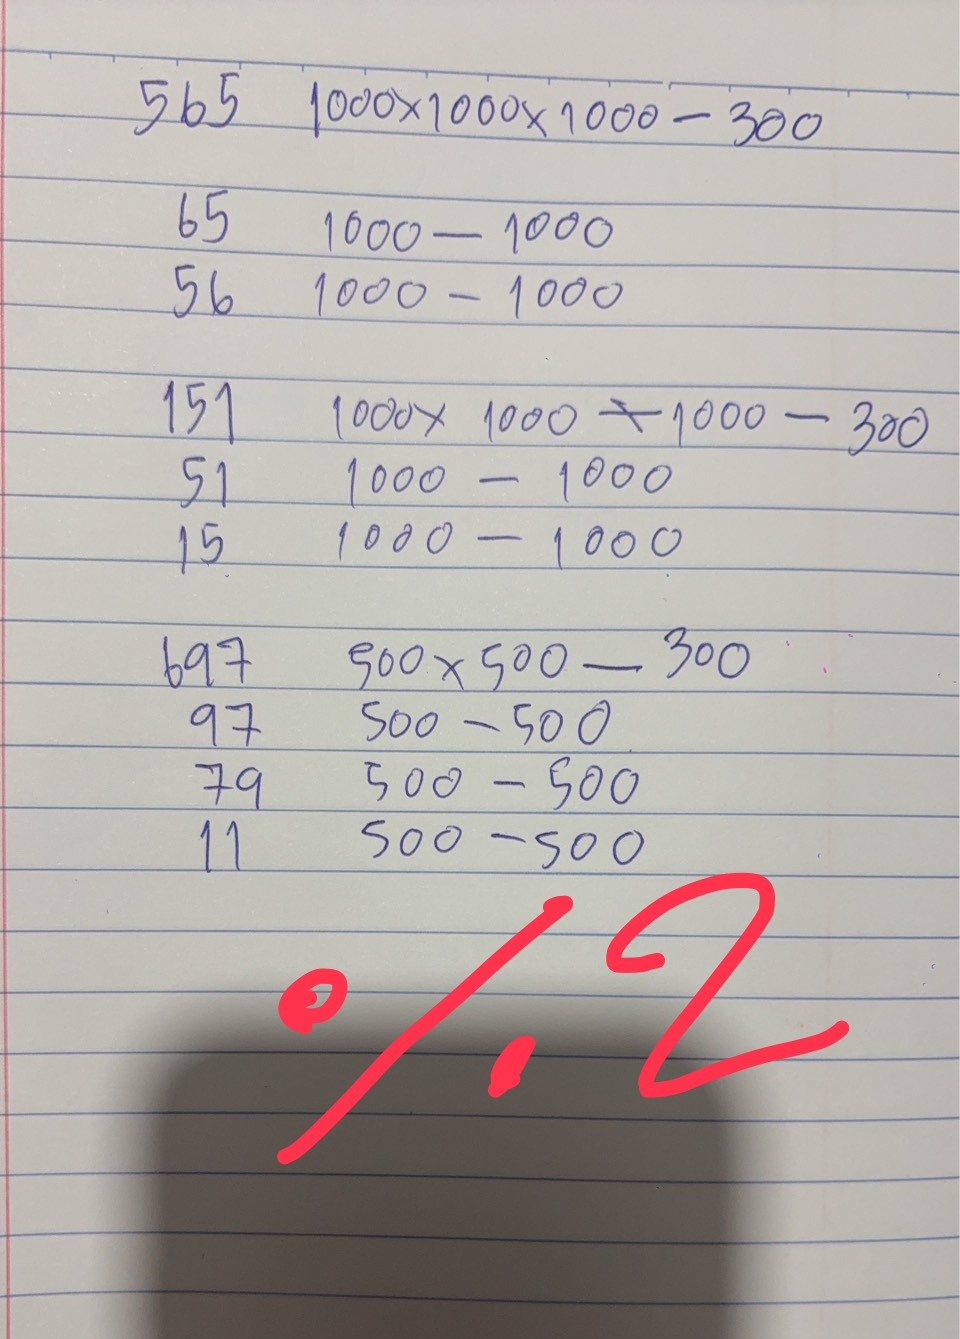 565 1000x1000x1000-300
65 1000-1000
56 1000-1000
151 1000x1000x1000-300
51 1000-1000
15 1000-1000
697 500x500-300
97 500-500
79 500-500
11 500-500
%2